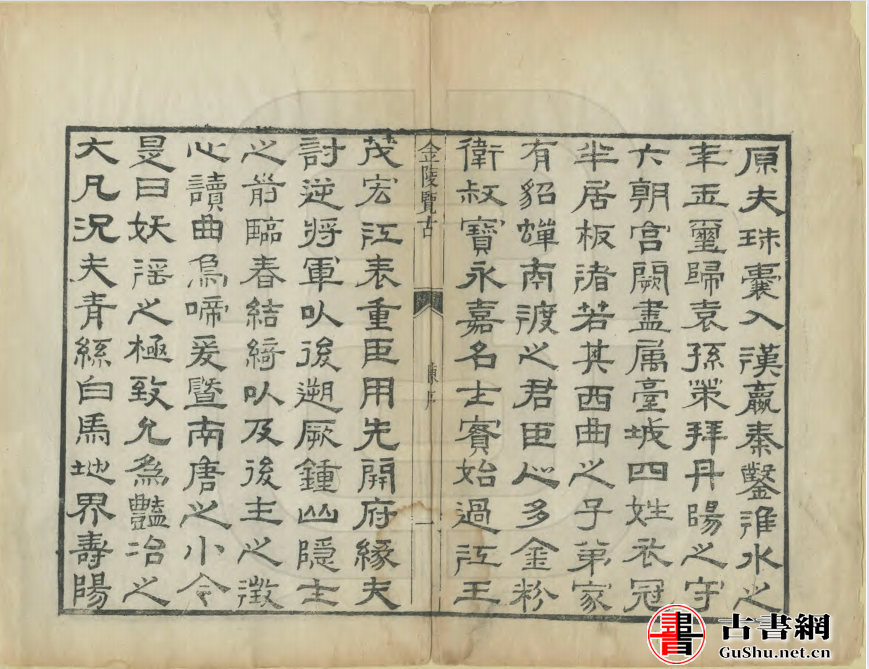 原夫珠囊入漢嬴秦鑿淮水之
年玉璽歸袁孫策拜丹陽之守
六朝宮闕盡属臺城四姓衣冠
半居板渚若其西曲之子弟家
有貂蟬南渡之君臣心多金粉
衛叔寶永嘉名士賓始過江王
金陵覽古 陳序 一
茂宏江表重臣用先開府緣夫
討逆將軍以後遡厥鍾山隱士
之前臨春結綺以及後主之徵
心讀曲烏啼爰暨南唐之小令
是曰妖淫之極致允爲豔冶之
大凡況夫青絲白馬地界壽陽
書 古書網
GuShu.net.cn